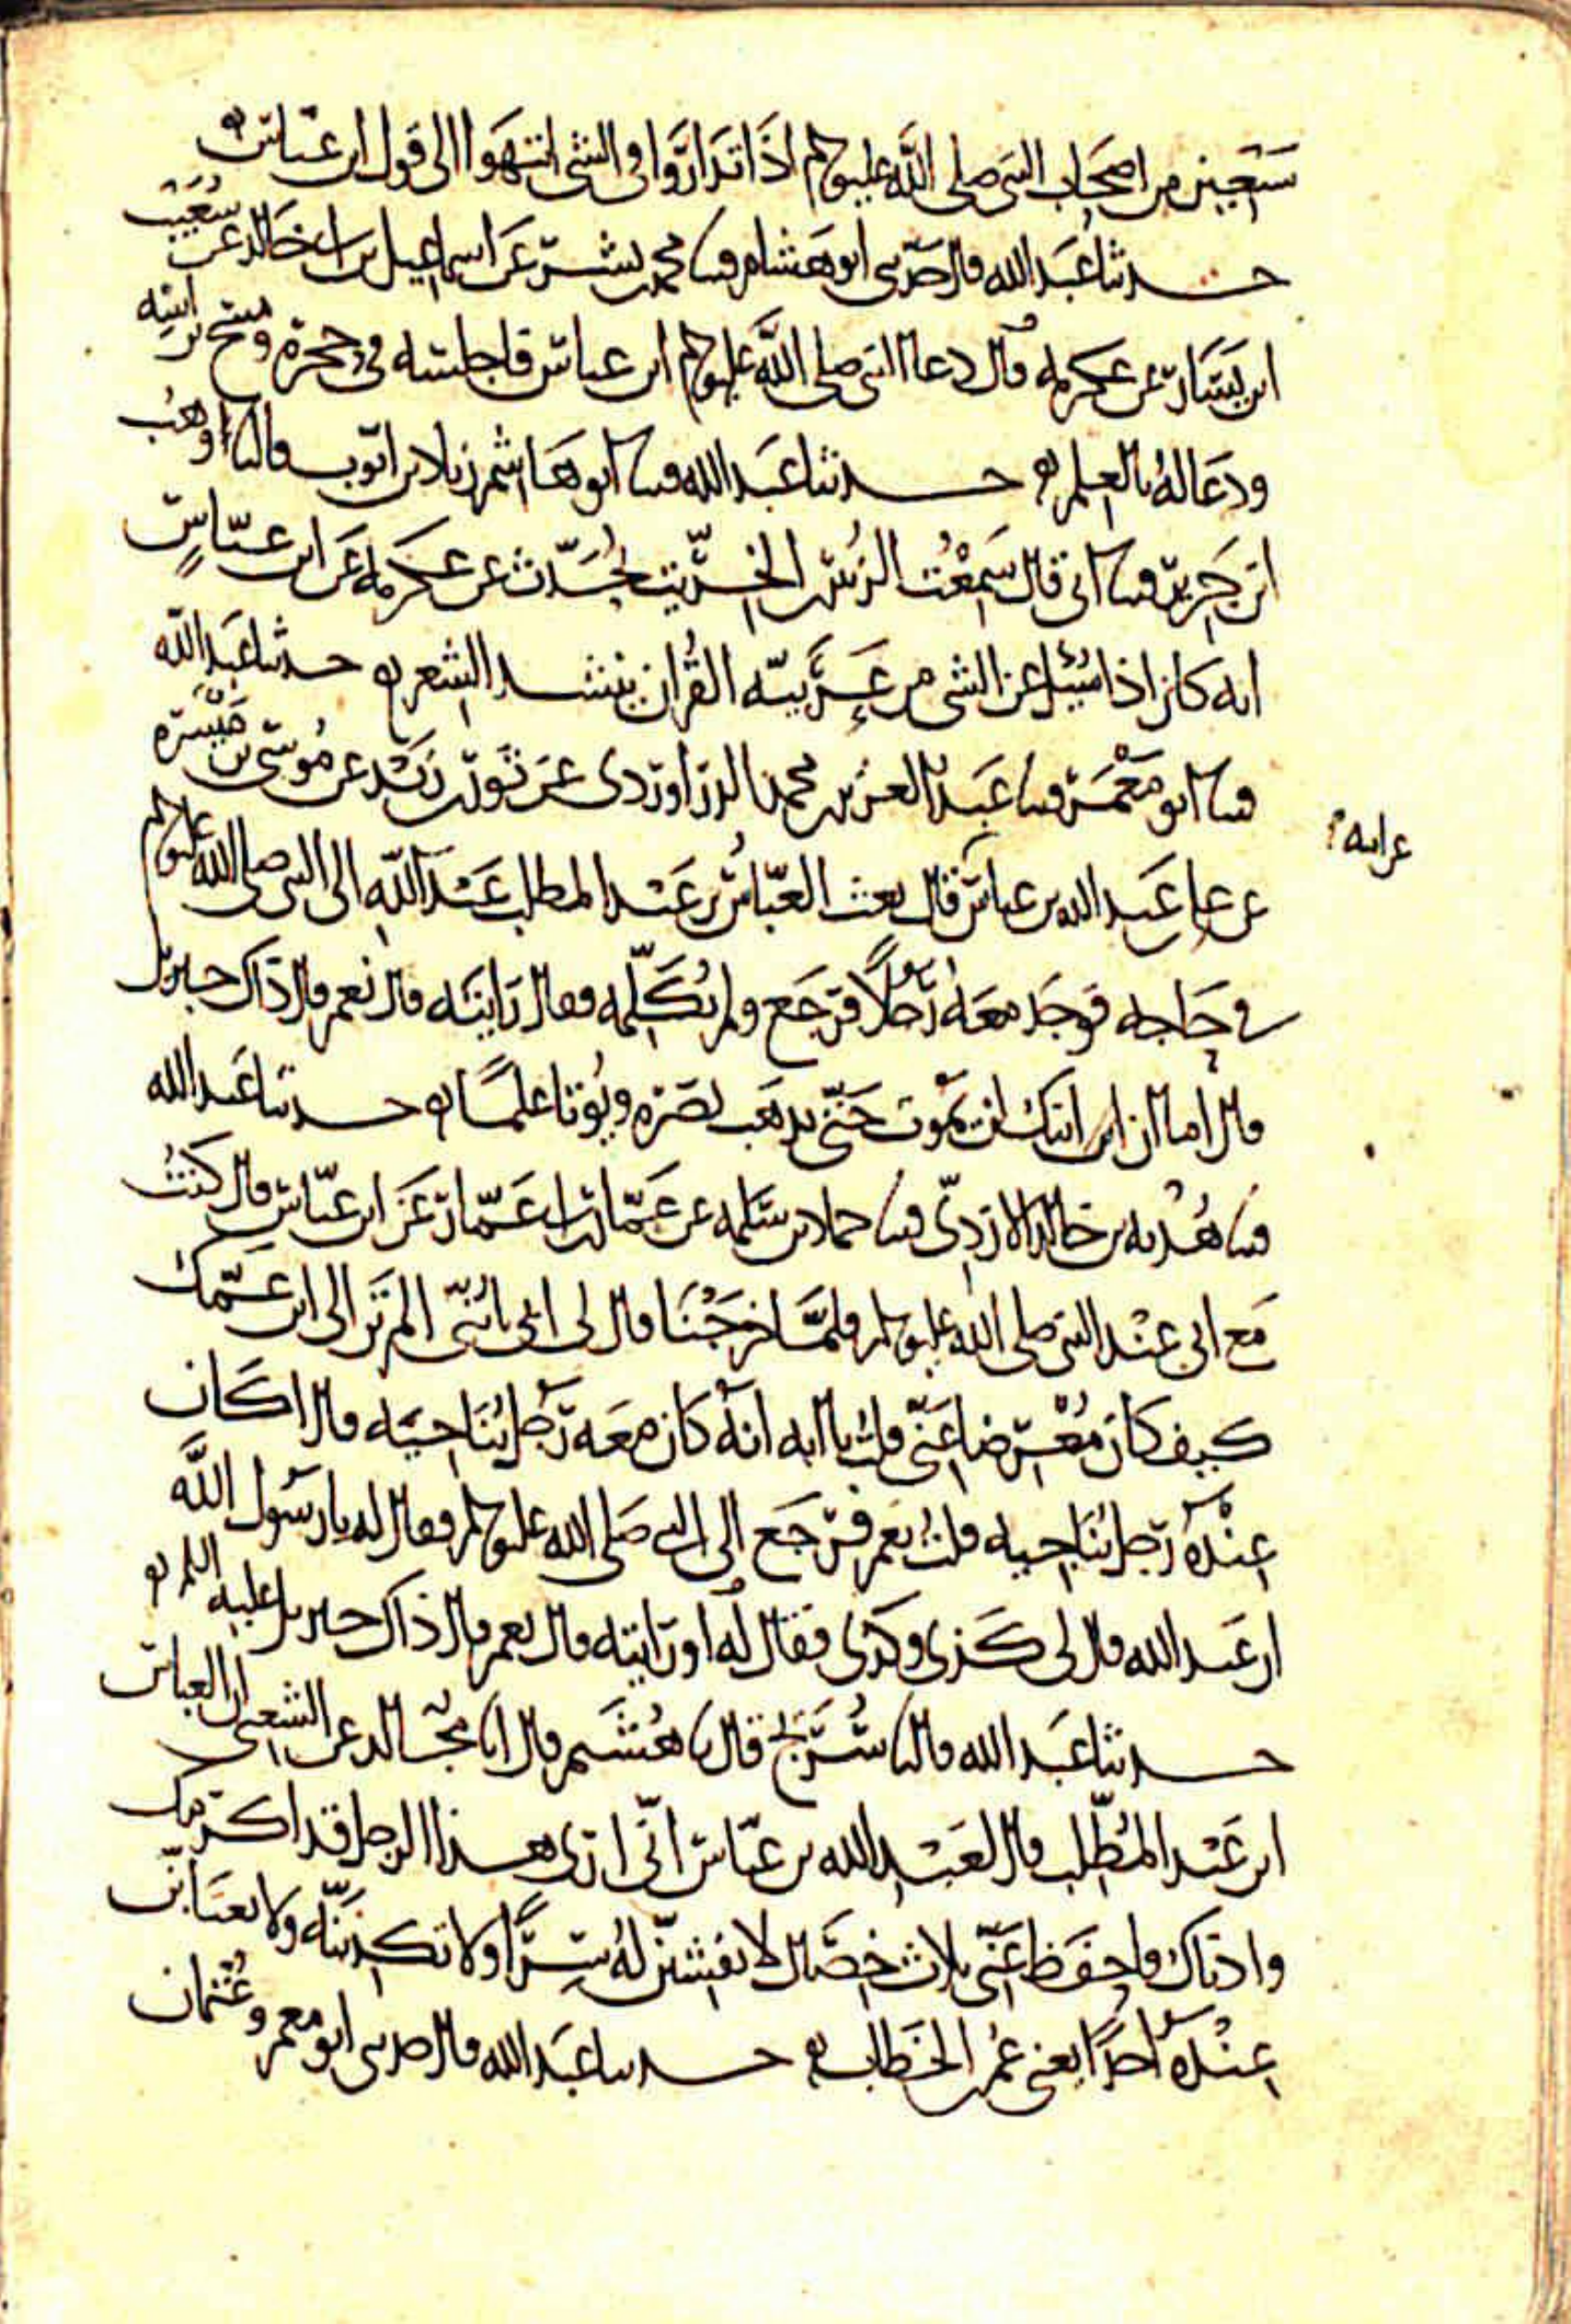 سبعين من اصحاب النبي صلى الله عليه وسلم اذا تداروا في الشي انتهوا الى قول ابن عباس
حدثنا عبد الله قال حدثني ابو هشام قثنا محمد بن بشر عن اسماعيل بن ابي خالد عن شعيب
ابن يسار عن عكرمه قال دعا النبي صلى الله عليه وسلم ابن عباس فاجلسه في حجره ومسح براسه
ودعا له بالعلم حدثنا عبد الله قثنا ابو هاشم زياد بن ايوب قال نا وهب
ابن جرير قثنا ابي قال سمعت الزبير بن الخريت يحدث عن عكرمه عن ابن عباس
انه كان اذا سئل عن الشي من عربيه القران ينشد الشعر حدثنا عبد الله
قثنا ابو معمر قثنا عبد العزيز بن محمد الدراوردى عن ثور بن زيد عن موسى بن ميسره
عن على عبد الله بن عباس قال بعث العباس بن عبد المطلب عبد الله الى النبي صلى الله عليه وسلم
عن ابيه
في حاجه فوجد معه رجلا فرجع ولم يكلمه فقال رايته قال نعم قال ذاك جبريل
قال اما ان ابنك لن يموت حتى يذهب بصره ويوتا علما حدثنا عبد الله
قثنا هدبه بن خالد الازدي قثنا حماد بن سلمه عن عمار بن ابي عمار عن ابن عباس قال كنت
مع ابي عند النبي صلى الله عليه وسلم فلما خرجنا قال لي ابي يا بني الم تر الى ابن عمك
كيف كان معرضا عني قلت يا ابه انه كان معه رجل يناجيه قال اكان
عنده رجل يناجيه قلت نعم فرجع الى النبي صلى الله عليه وسلم فقال له يا رسول الله
ان عبد الله قال لي كذى وكذى فقال له او رايته قال نعم قال ذاك جبريل عليه السلم
حدثنا عبد الله قال نا سريج قال نا هشيم قال انا مجالد عن الشعبي ان العباس
ابن عبد المطلب قال لعبد الله بن عباس اني ارى هذا الرجل قد اكرمك
وادناك فاحفظ عني ثلاث خصال لا تفشين له سرا ولا تكذبنه ولا تغتابن
عنده احدا يعني عمر بن الخطاب حدثنا عبد الله قال حدثني ابو معمر وعثمان